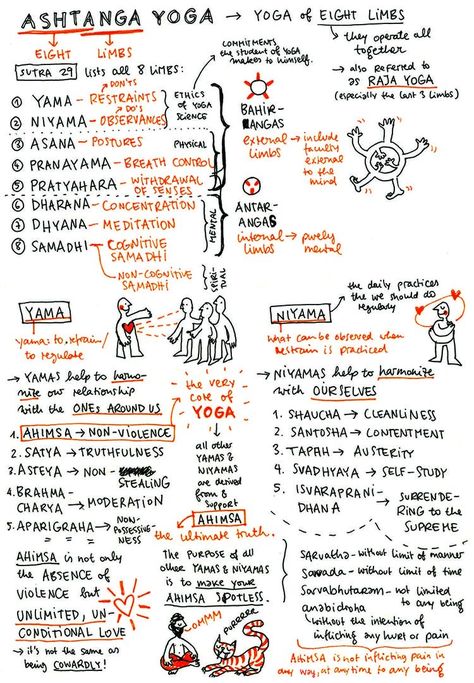 ASHTANGA YOGA → YOGA of EIGHT LIMBS
EIGHT LIMBS
→ they operate all together
→ also referred to as RAJA YOGA
(especially the last 3 limbs)
SUTRA 29 lists all 8 LIMBS:
COMMITMENTS
the student of YOGA
makes to himself.
DON'TS
① YAMA - RESTRAINTS
DO's
② NIYAMA - OBSERVANCES
ETHICS
of YOGA
SCIENCE
③ ASANA - POSTURES
④ PRANAYAMA - BREATH CONTROL
⑤ PRATYAHARA - WITHDRAWAL
OF SENSES
PHYSICAL
⑥ DHARANA - CONCENTRATION
⑦ DHYANA - MEDITATION
⑧ SAMADHI - COGNITIVE
SAMADHI
MENTAL
NON-COGNITIVE
SAMADHI
SPIRI-
TUAL
BAHIR-
ANGAS
external → include
limbs faculty
external
to the
mind
ANTAR-
ANGAS
internal → purely
limbs mental
YAMA
yama: to refrain/
to regulate
→ YAMAS help to harmo-
nize our relationship
with the ONES AROUND US
1. AHIMSA → NON-VIOLENCE
2. SATYA → TRUTHFULNESS
3. ASTEYA → NON-
STEALING
4. BRAHMA-
CHARYA → MODERATION
5. APARIGRAHA → NON-
POSSESSIVE-
NESS
the very
core of
YOGA
all other
YAMAS &
NIYAMAS
are derived
from &
support
AHIMSA
the ultimate truth.
NIYAMA
the daily practices
the we should do
regularly
what can be observed when
restrain is practiced
→ NIYAMAS help to harmonize
with OURSELVES
1. SHAUCHA → CLEANLINESS
2. SANTOSHA → CONTENTMENT
3. TAPAH → AUSTERITY
4. SVADHYAYA → SELF-STUDY
5. ISVARAPRANI-
DHANA → SURRENDE-
RING to the
SUPREME
AHIMSA is not only
the ABSENCE of
VIOLENCE but
UNLIMITED, UN-
CONDITIONAL LOVE
→ it's not the same as
being COWARDLY!
The PURPOSE of all
other YAMAS & NIYAMAS
is to make your
AHIMSA SPOTLESS.
OMMM
PURRRRR
Sarvatha - without limit of manner
Sarvada - without limit of time
Sarvabhutanam - not limited
to any being
anabidroha
without the intention of
inflicting any hurt or pain
AHIMSA is not inflicting pain in
any way, at any time to any being